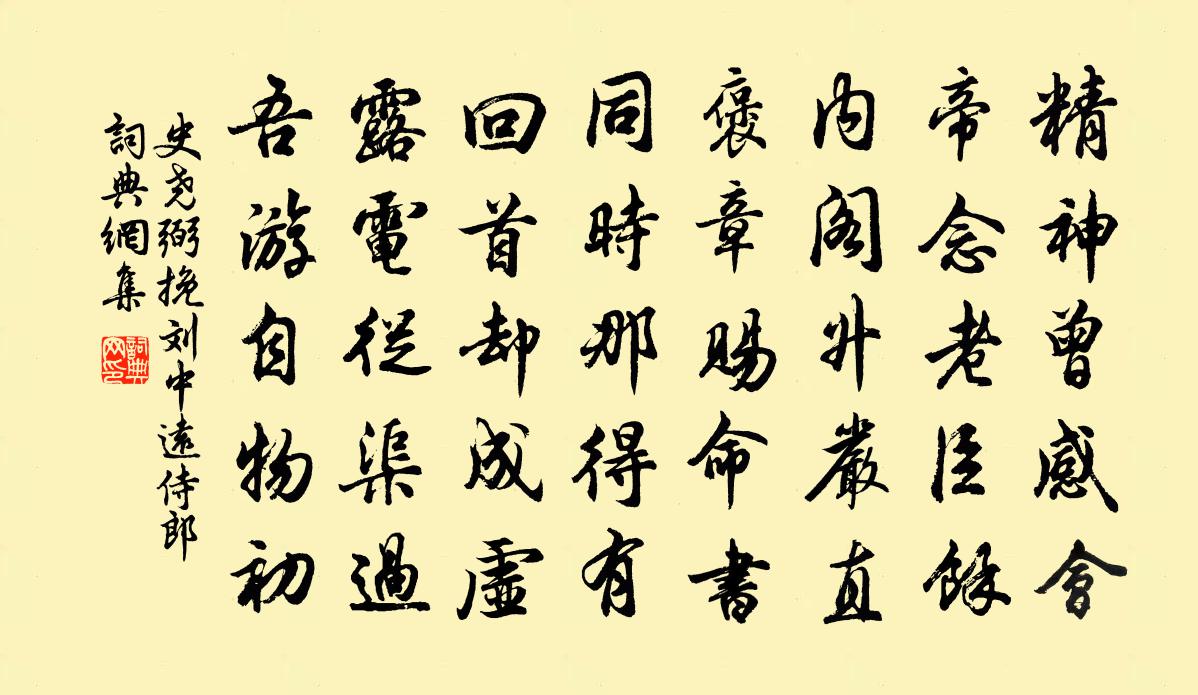 精神曾感會
帝念老臣餘
内閣升嚴直
褒章賜命書
同時那得有
回首却成虛
露電從渠過
吾游自物初
史尧弼挽刘中遠侍郎
詞典網集
詞典网印